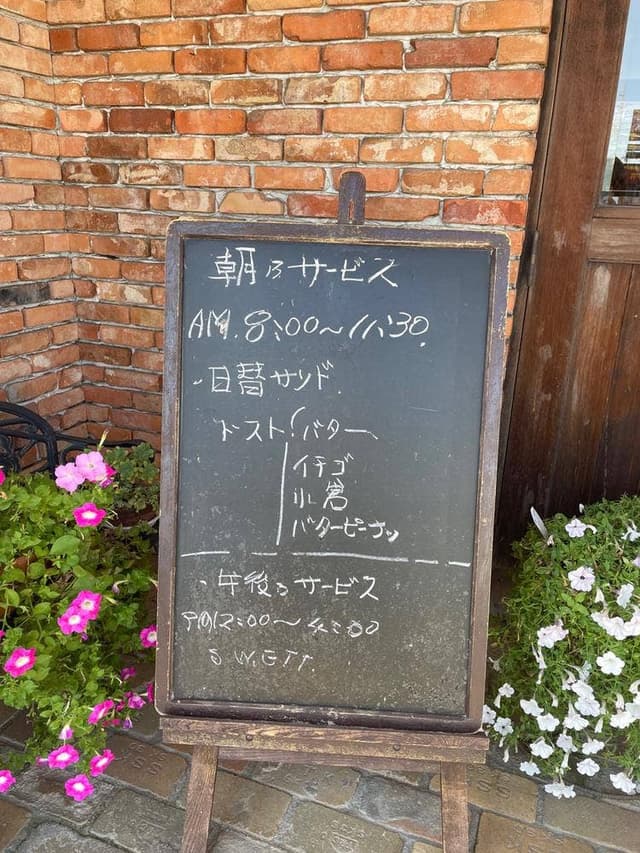 朝のサービス
AM. 8:00〜11:30.
・日替サンド.
トースト(バター
イチゴ
小倉
バターピーナッツ
・午後のサービス
PM 2:00〜4:00
SWETT.